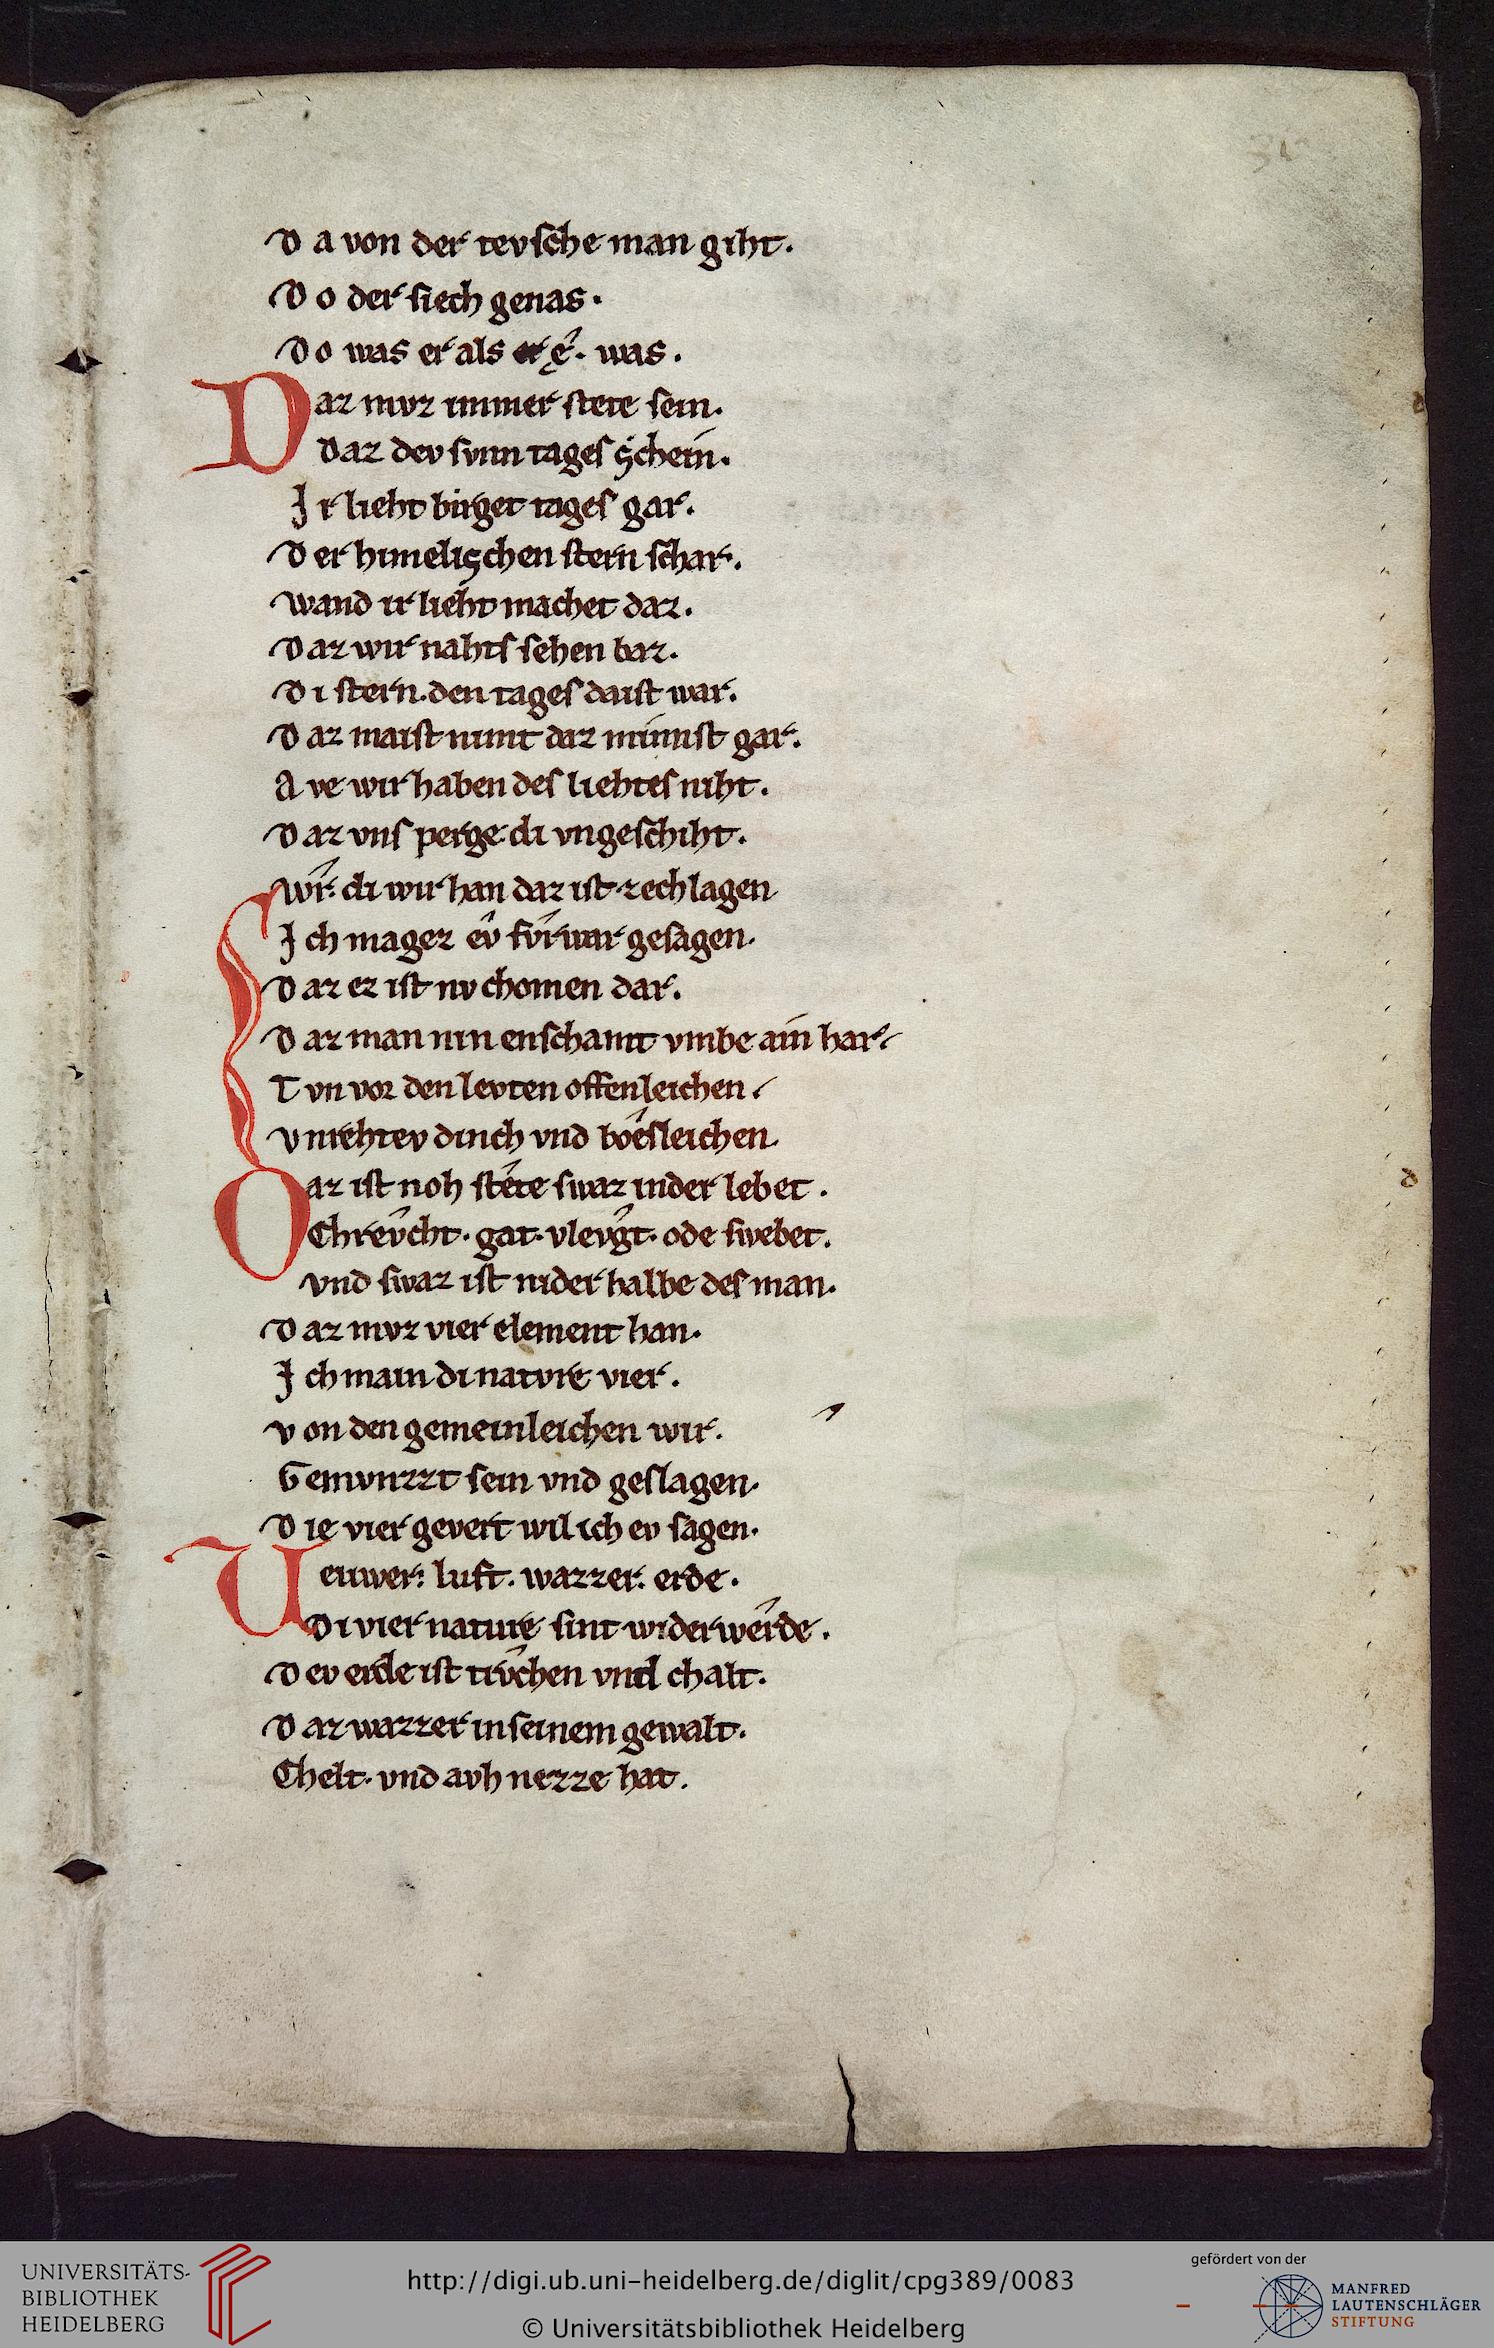 D a von der tevſche man giht.
D o der ſiech genas.
D o was er als e. was.
Daz mvz immer ſtete ſein.
Daz dev ſvnn tages ſchein.
I r lieht birget tages gar.
D er himeliſchen ſtern ſchar.
Wand ir lieht machet daz.
D az wir nahts ſehen baz.
D i ſtern. den tages daiſt war.
D az maiſt nimt daz minniſt gar.
A ve wir haben des liehtes niht.
D az vnſ perge di vngeſchiht.
Wir di wir han daz iſt zechlagen
I ch magez ev fvrwar geſagen.
D az ez iſt nv chomen dar.
D az man nin enſchamt vmbe ain har.
T vn vor den levten offenleichen.
v nrehtev dinch vnd boeſleichen.
Daz iſt noh ſtete ſwaz inder lebet.
Chrevcht. gat. vlevgt. ode ſwebet.
vnd ſwaz iſt nider halbe des man.
D az mvz vier element han.
I ch main di natvre vier.
v on den gemeinleichen wir.
G emvnzzt ſein vnd geſlagen.
D ie vier gevert wil ich ev ſagen.
Veuwer. luft. wazzer. erde.
Di vier nature ſint widerwerde.
D ev erde iſt trvchen vnd chalt.
D az wazzer in ſeinem gewalt.
Chelt. vnd avh nezze hat.
UNIVERSITÄTS-
BIBLIOTHEK
HEIDELBERG
http://digi.ub.uni-heidelberg.de/diglit/cpg389/0083
© Universitätsbibliothek Heidelberg
gefördert von der
MANFRED
LAUTENSCHLÄGER
STIFTUNG